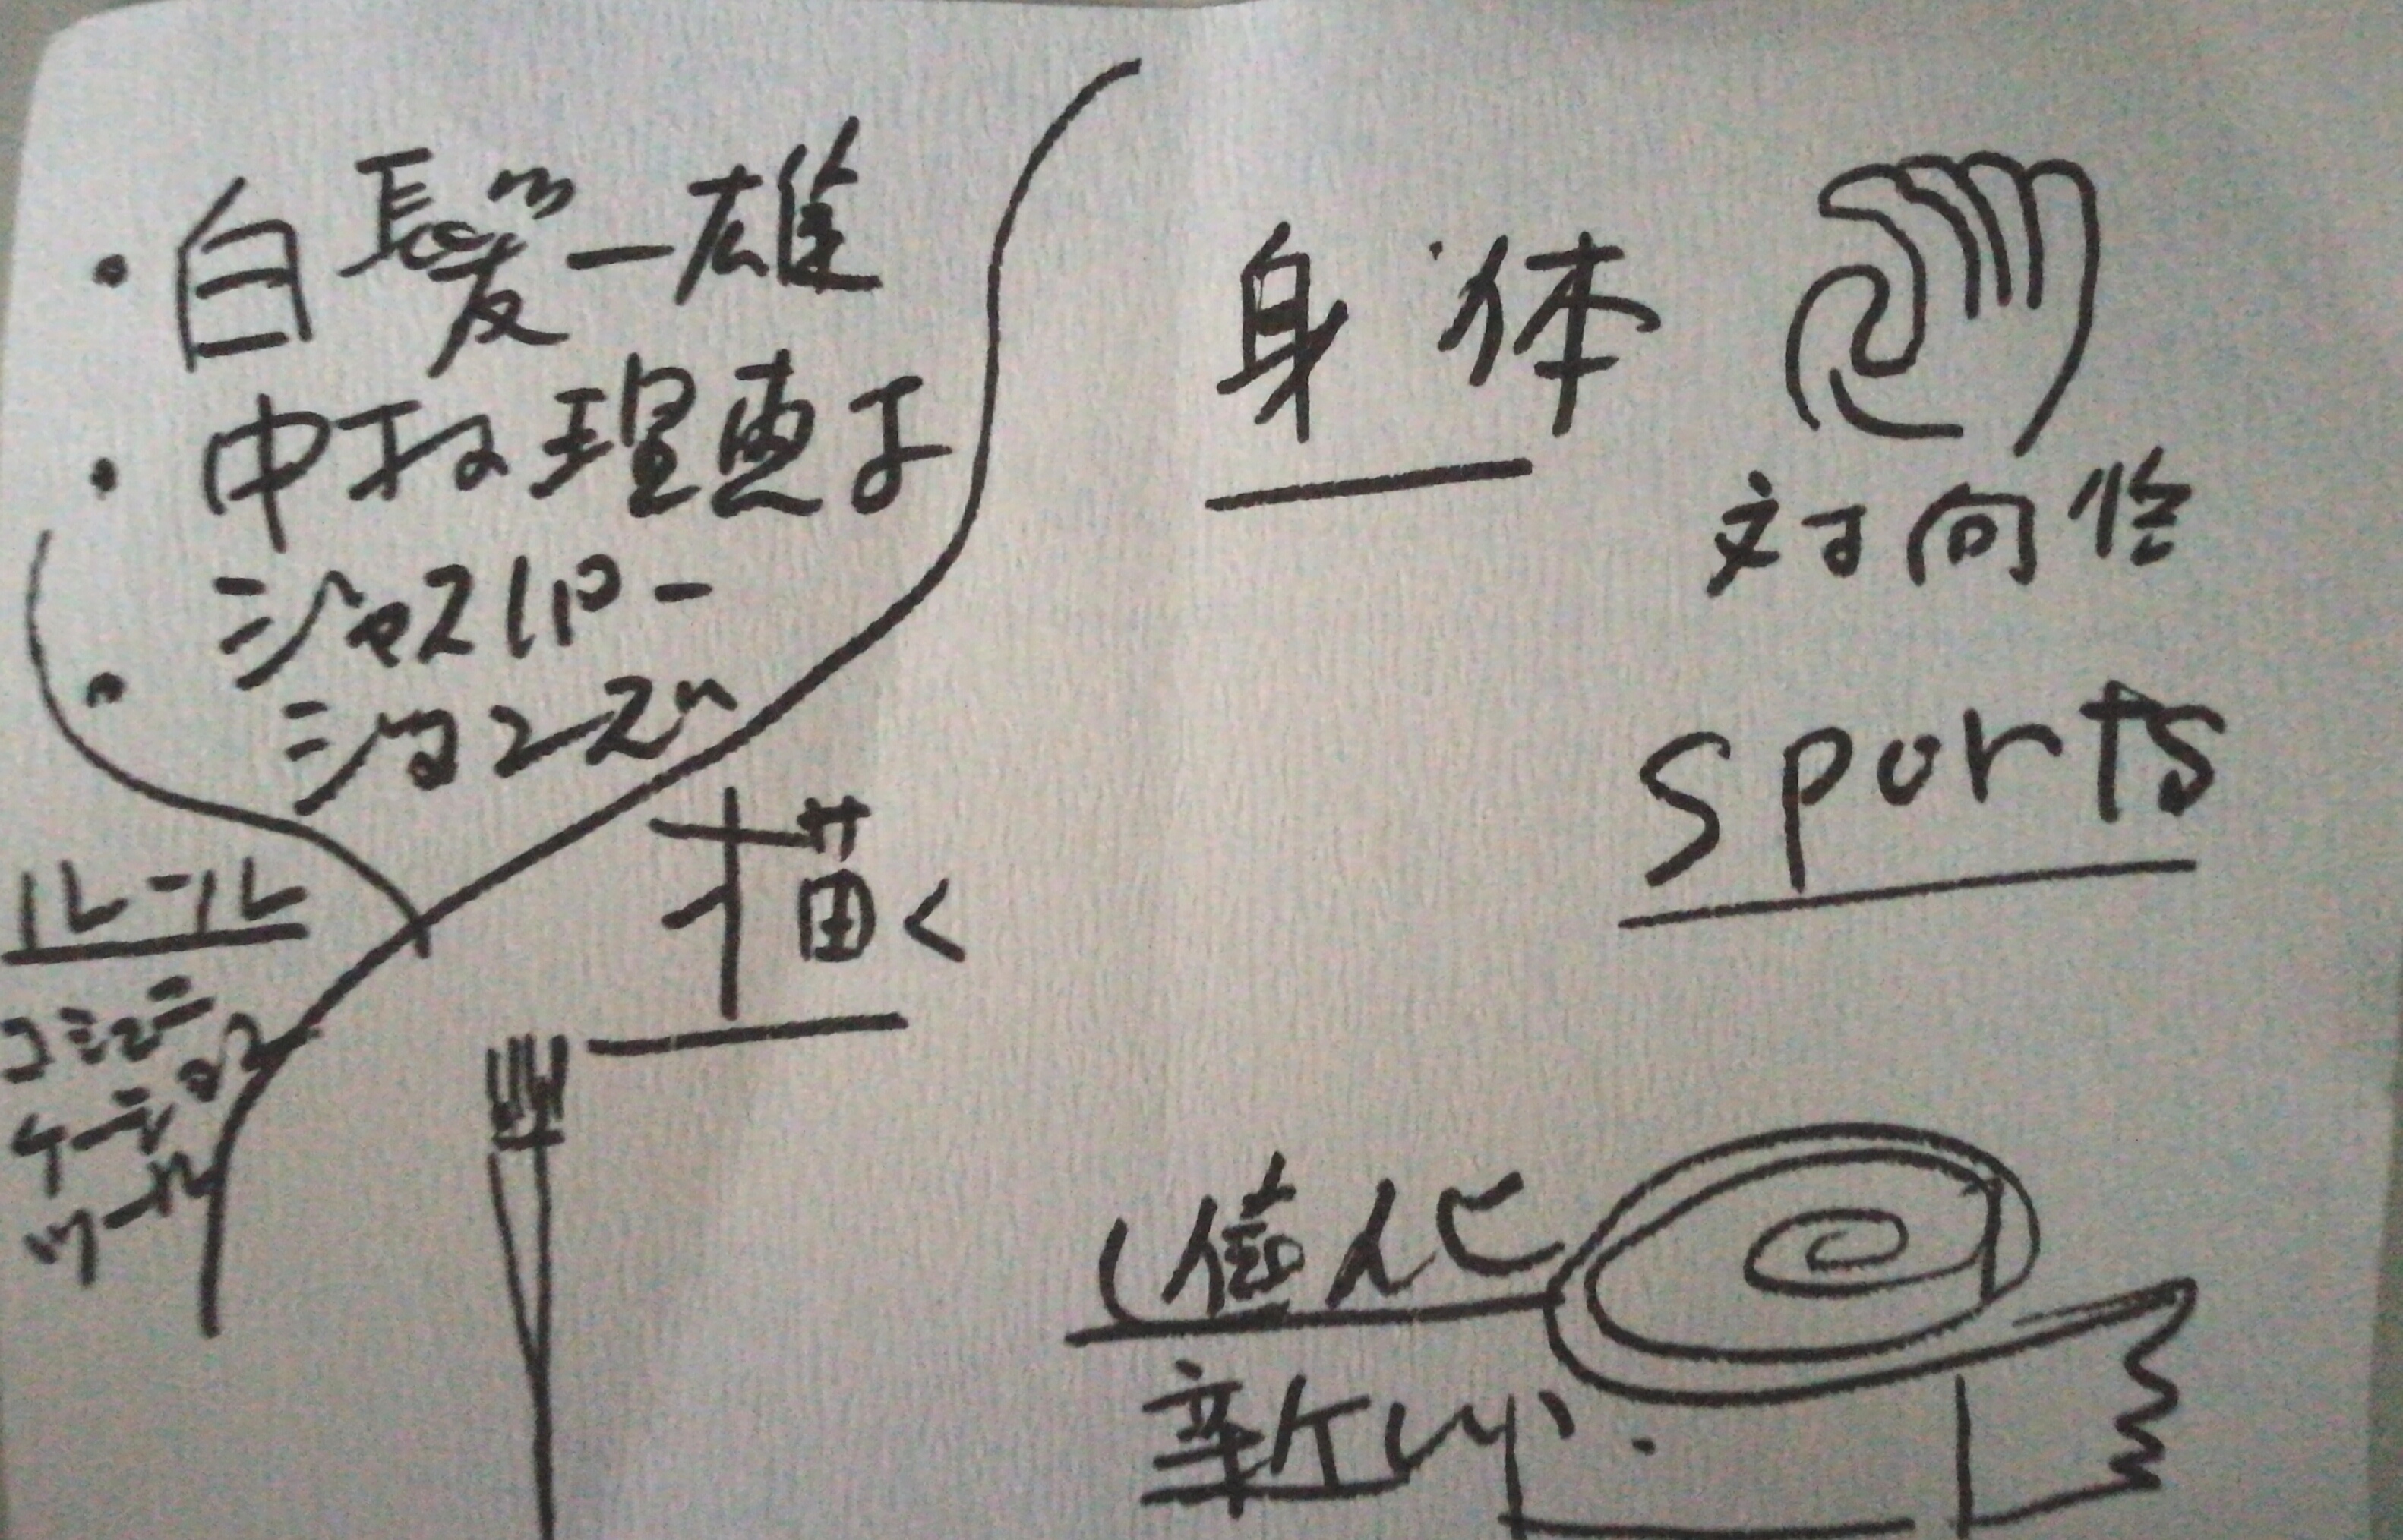 ・白髪一雄
・中村理恵子
・ジャスパー
ジョーンズ
描く
ルール
コミュニ
ケーション
ツール
身体
対向性
sports
新しい